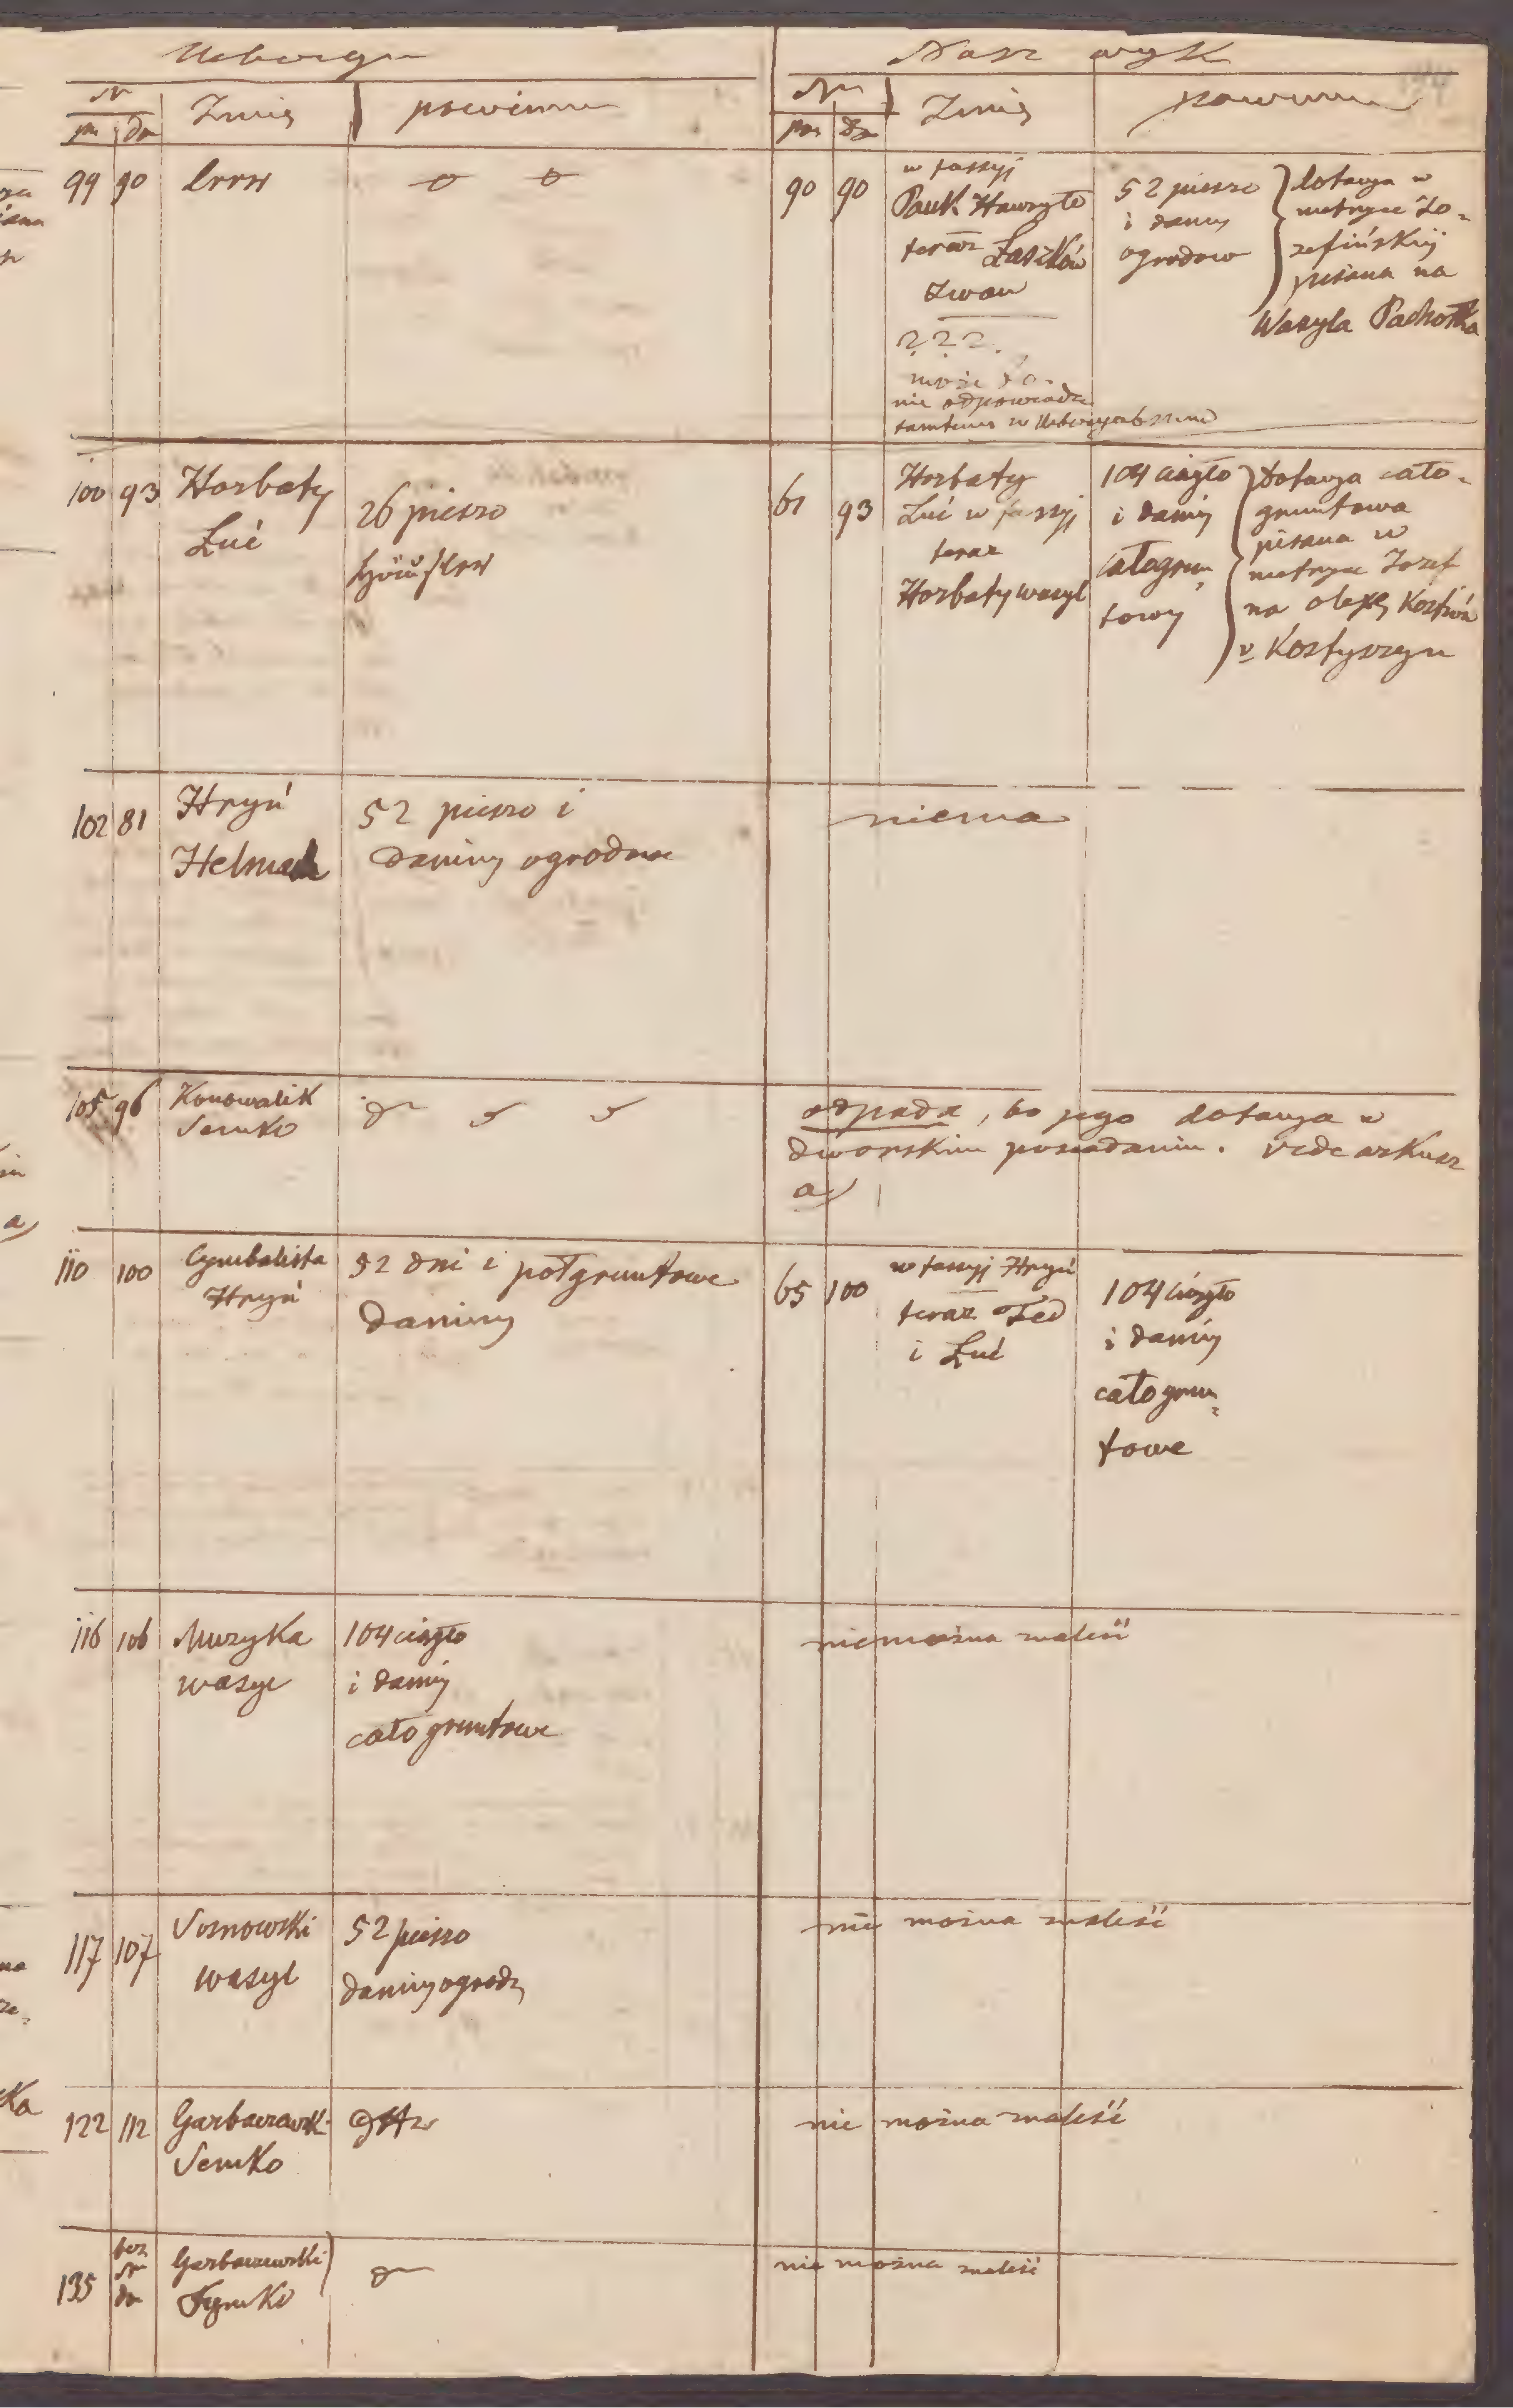 Nasz wyk
Nr Imię powinn
po do
Nr Imię powinn
po do
99 90 leer
90 90 w fassyj
Pauk Hawryło
teraz Łaszków
Iwan
? ? ?
może to
nie odpowiada
tamtemu w
52 pieszo
i daniny
ogrodow
dotacya w
metryce Jo-
zefińskiij
pisana na
Wasyla Pachołka
100 93 Horbaty
Luć
26 pieszo
Häusler
61 93 Horbaty
Luć w fassyj
teraz
Horbaty wasyl
104 ciągło
i daniny
całogrun-
towy
Dotacya cało-
gruntowa
pisana w
metryce Jozef
na olexę Kostiów
v. Kostyszyn
102 81 Hryń
Helmach
52 pieszo i
daniny ogrodowe
niema
105 96 Konowalik
Semko
odpada, bo jego dotacya w
dworskim posiadaniu. vide arkusz
a)
110 100 Cymbalista
Hryń
52 dni i półgruntowe
daniny
65 100 w fassyj Hryń
teraz Fed
i Luć
104 ciągło
i daniny
całogrun-
towe
116 106 Muzyka
wasyl
104 ciągło
i daniny
całogruntowe
niemożna znaleść
117 107 Sosnowski
wasyl
52 pieszo
daniny ogrodz
nie można znaleść
122 112 Garbaczewsk
Semko
nie można znaleść
135 bez
Nr
do
Garbaczewski
Tymko
nie można znaleść